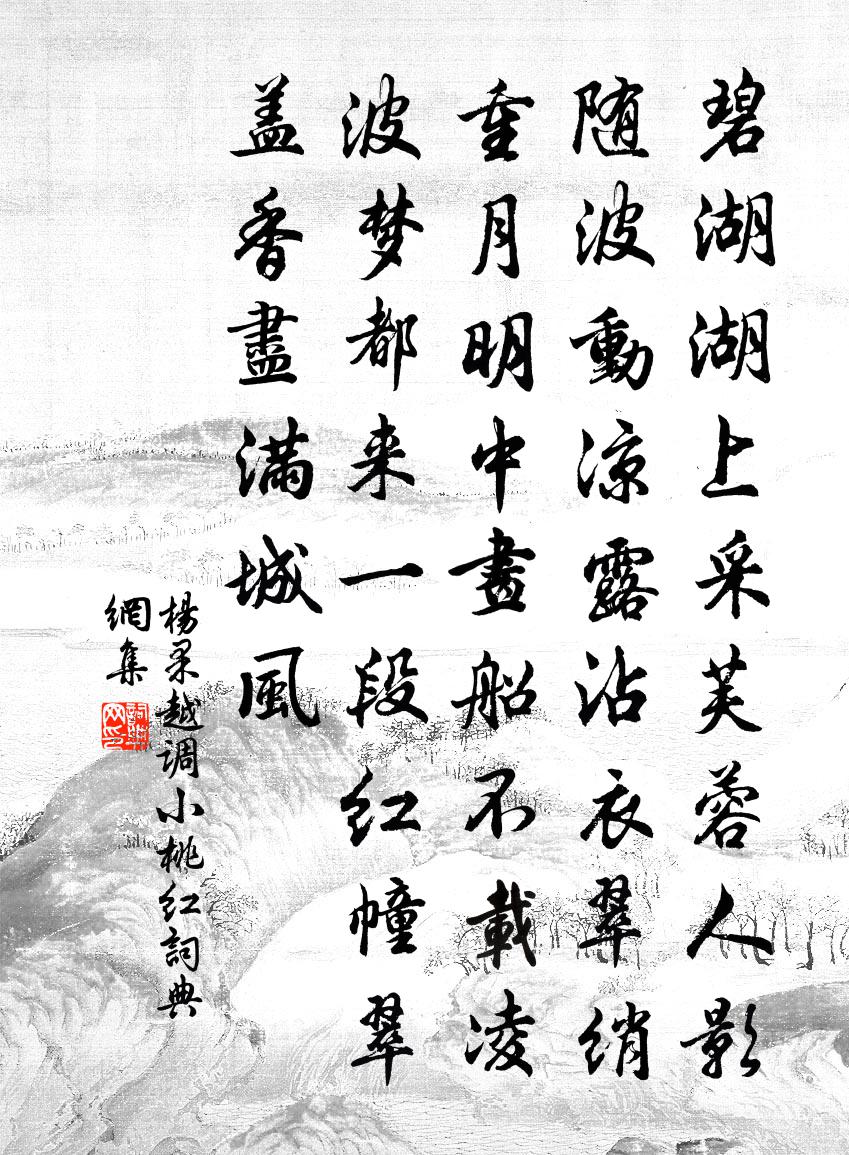 碧湖湖上采芙蓉人影
随波動凉露沾衣翠绡
重月明中畫船不載凌
波梦都来一段红幢翠
盖香盡满城風
楊果越調小桃红詞典
網集